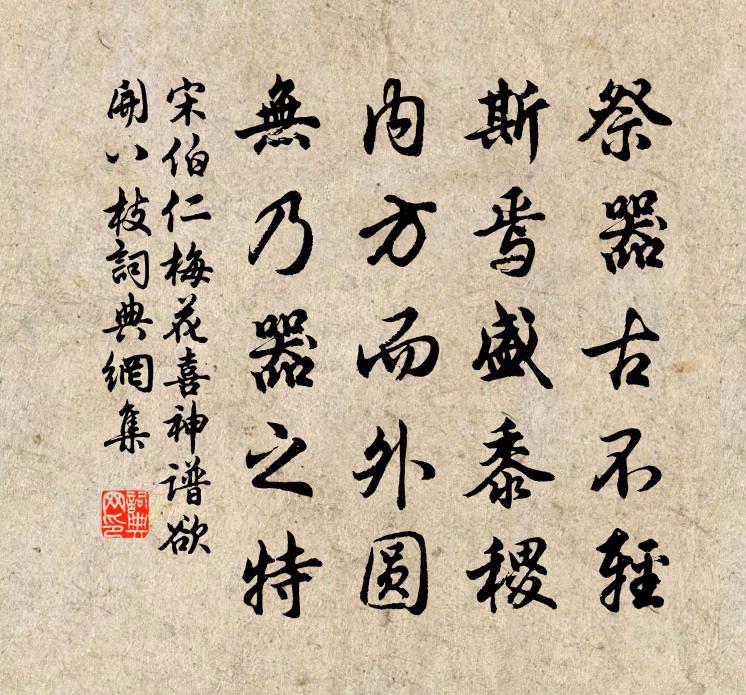 祭器古不輕
斯焉盛黍稷
内方而外圆
無乃器之特
宋伯仁梅花喜神谱欲
開八枝詞典網集
詞典网印